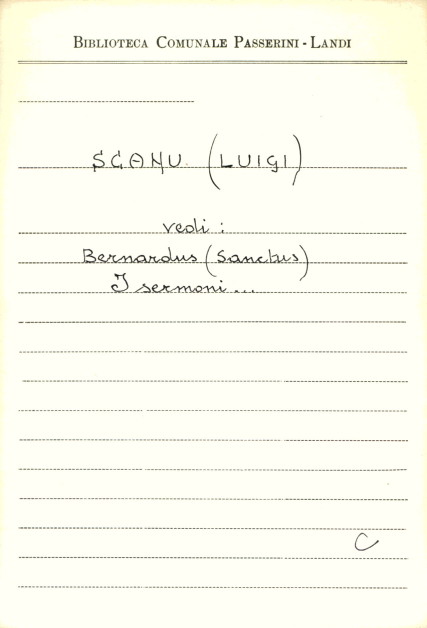 BIBLIOTECA COMUNALE PASSERINI - LANDI
SCANU (LUIGI)
vedi :
Bernardus (Sanctus)
I sermoni ...
C